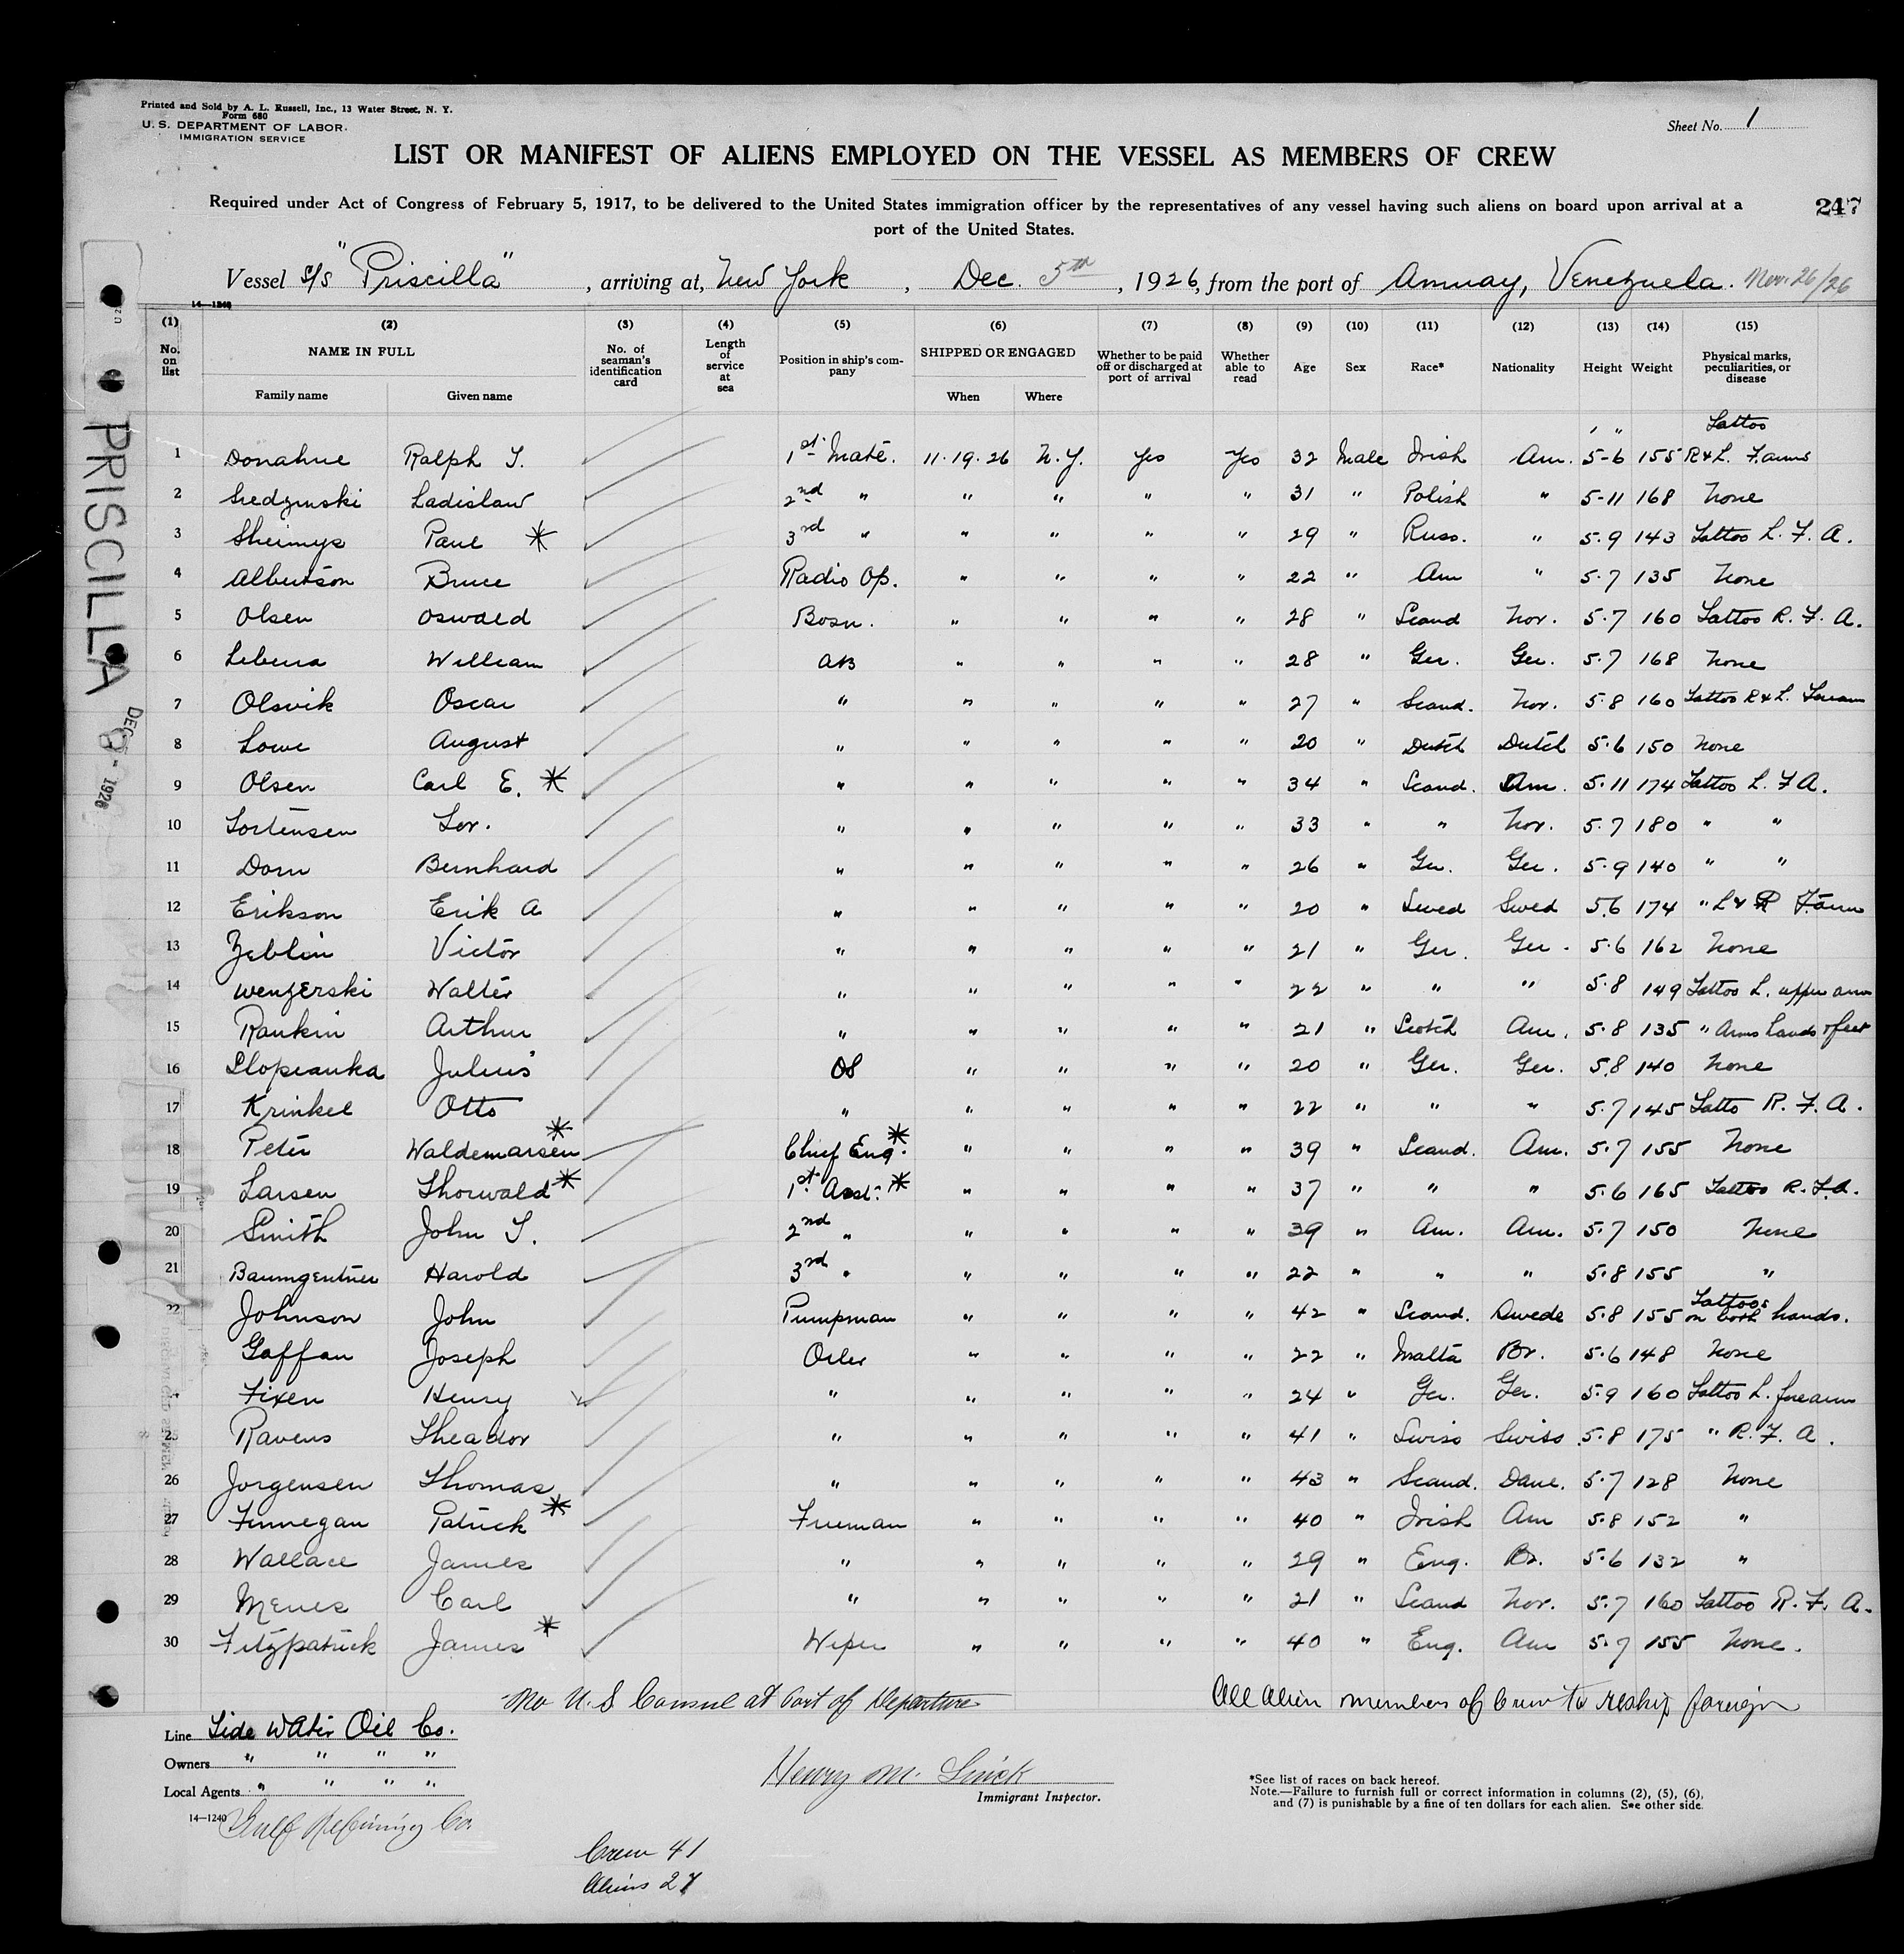 Printed and Sold by A. L. Russell, Inc., 13 Water Street, N. Y.
Form 680
U. S. DEPARTMENT OF LABOR
IMMIGRATION SERVICE
Sheet No. 1
LIST OR MANIFEST OF ALIENS EMPLOYED ON THE VESSEL AS MEMBERS OF CREW
Required under Act of Congress of February 5, 1917, to be delivered to the United States immigration officer by the representatives of any vessel having such aliens on board upon arrival at a
port of the United States.
247
Vessel S/S "Priscilla", arriving at, New York, Dec. 5th, 1926, from the port of Amuay, Venezuela. Nov. 26/26
14—1240
(1) (2) (3) (4) (5) (6) (7) (8) (9) (10) (11) (12) (13) (14) (15)
No. on list NAME IN FULL No. of seaman's identification card Length of service at sea Position in ship's company SHIPPED OR ENGAGED Whether to be paid off or discharged at port of arrival Whether able to read Age Sex Race* Nationality Height Weight Physical marks, peculiarities, or disease
Family name Given name When Where
' " Tattoo
1 Donahue Ralph T. 1st Mate. 11-19-26 N.Y. Yes Yes 32 Male Irish Am. 5-6 155 R & L. F. arms
2 Ladislaw 2nd " " " " " 31 " Polish " 5-11 168 None
3 * 3rd " " " " " 29 " Russ. " 5-9 143 Tattoo L. F. A.
4 Albertson Bruce Radio Op. " " " " 22 " Am " 5-7 135 None
5 Olsen Oswald Bosn. " " " " 28 " Scand Nor. 5-7 160 Tattoo R. F. A.
6 William AB " " " " 28 " Ger. Ger. 5-7 168 None
7 Olsvik Oscar " " " " " 27 " Scand. Nor. 5-8 160 Tattoo R & L. Forearm
8 Lowe August " " " " " 20 " Dutch Dutch 5-6 150 None
9 Olsen Carl E. * " " " " " 34 " Scand. Am. 5-11 174 Tattoo L. F A.
10 Tortensen Tor. " " " " " 33 " " Nor. 5-7 180 " "
11 Dorn Bernhard " " " " " 26 " Ger. Ger. 5-9 140 " "
12 Erikson Erik A " " " " " 20 " Swed Swed 5-6 174 " L & R F. arm
13 Zeblin Victor " " " " " 21 " Ger. Ger. 5-6 162 None
14 Wenzerski Walter " " " " " 22 " " " 5-8 149 Tattoo L. upper arm
15 Rankin Arthur " " " " " 21 " Scotch Am. 5-8 135 " Arms hands & feet
16 Slopianka Julius OS " " " " 20 " Ger. Ger. 5-8 140 None
17 Krinkel Otto " " " " " 22 " " " 5-7 145 Tatto R. F. A.
18 Peter Waldemarsen * Chief Eng. * " " " " 39 " Scand. Am. 5-7 155 None
19 Larsen Thorwald * 1st Asst. * " " " " 37 " " " 5-6 165 Tattoo R. F. A.
20 Smith John T. 2nd " " " " " 39 " Am. Am. 5-7 150 None
21 Baumgentner Harold 3rd " " " " " 22 " " " 5-8 155 "
22 Johnson John Pumpman " " " " 42 " Scand. Swede 5-8 155 Tattoos on both hands.
Gaffan Joseph Oiler " " " " 22 " Malta Br. 5-6 148 None
Fixen Henry " " " " " 24 " Ger. Ger. 5-9 160 Tattoo L. forearm
25 Ravens Theador " " " " " 41 " Swiss Swiss 5-8 175 " R. F. A.
26 Jorgensen Thomas " " " " " 43 " Scand. Dane. 5-7 128 None
27 Finnegan Patrick * Fireman " " " " 40 " Irish Am 5-8 152 "
28 Wallace James " " " " " 29 " Eng. Br. 5-6 132 "
29 Carl " " " " " 21 " Scand Nor. 5-7 160 Tattoo R. F. A.
30 Fitzpatrick James * Wiper " " " " 40 " Eng. Am 5-7 155 None.
No U.S Consul at Port of Departure
All Alien members of Crew to reship foreign
Line Tide Water Oil Co.
Owners " " " "
Local Agents " " " "
14—1240
Gulf Refining Co.
Henry M.
Immigrant Inspector.
*See list of races on back hereof.
Note.—Failure to furnish full or correct information in columns (2), (5), (6),
and (7) is punishable by a fine of ten dollars for each alien. See other side.
Crew 41
Aliens 27
PRISCILLA
DEC 1926